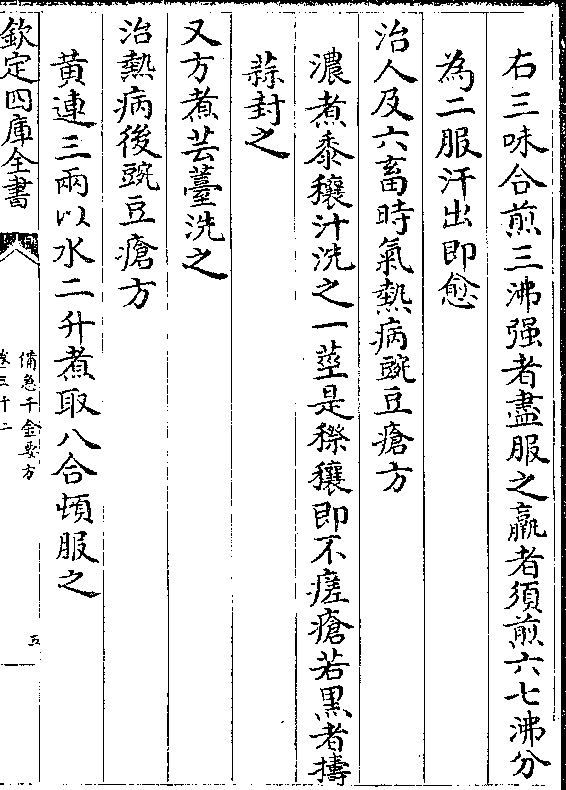 右三味合煎三沸强者盡服之羸者須煎六七沸分
為二服汗出即愈
治人及六畜時氣熱病豌豆瘡方
濃煮黍穰汁洗之一莖是穄穰即不瘥瘡若黒者擣
蒜封之
又方煮芸薹洗之
治熱病後豌豆瘡方
黄連三兩以水二升煮取八合頓服之
欽定四庫全書
備急千金要方
卷三十二
五